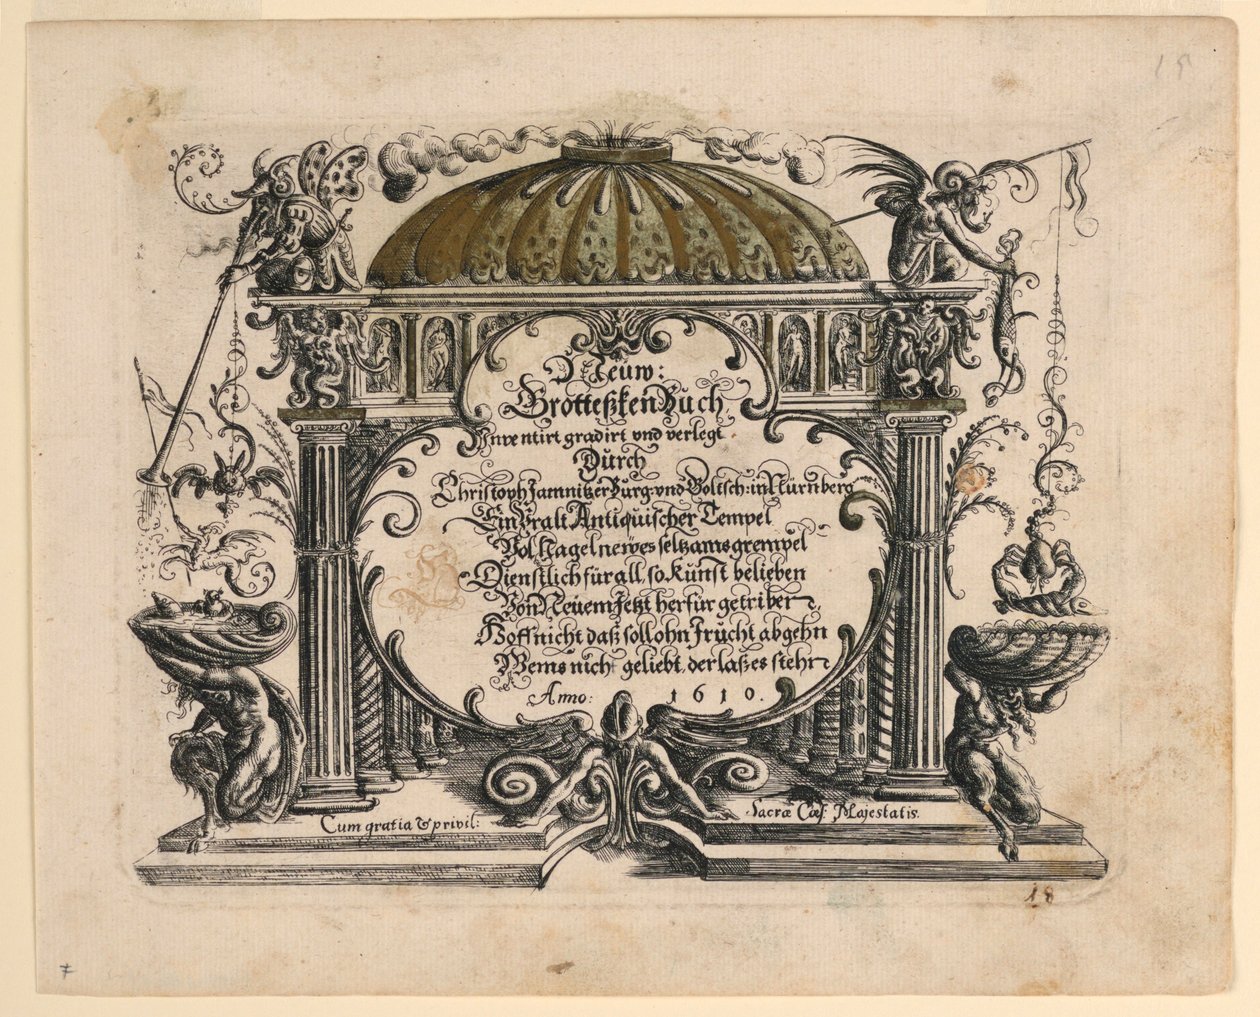 Neüw:
Grotteßken Buch
Inventirt gradirt vnd verlegt
Durch
Christoph Jamnitzer Burg: vnd Goltsch: in Nürnberg
Ein Vralt Antiquischer Tempel
Vol Nagel newes seltzams grempel
Dienstlich für all, so Kunst belieben
Von Neüem Jetzt herfür getriben,
Hoff nicht daß soll ohn Frucht abgehn
Wems nicht geliebt, der laß es stehn
Anno: 1610.
Cum gratia & privil:
Sacræ Cæs: Majestatis.
18
7